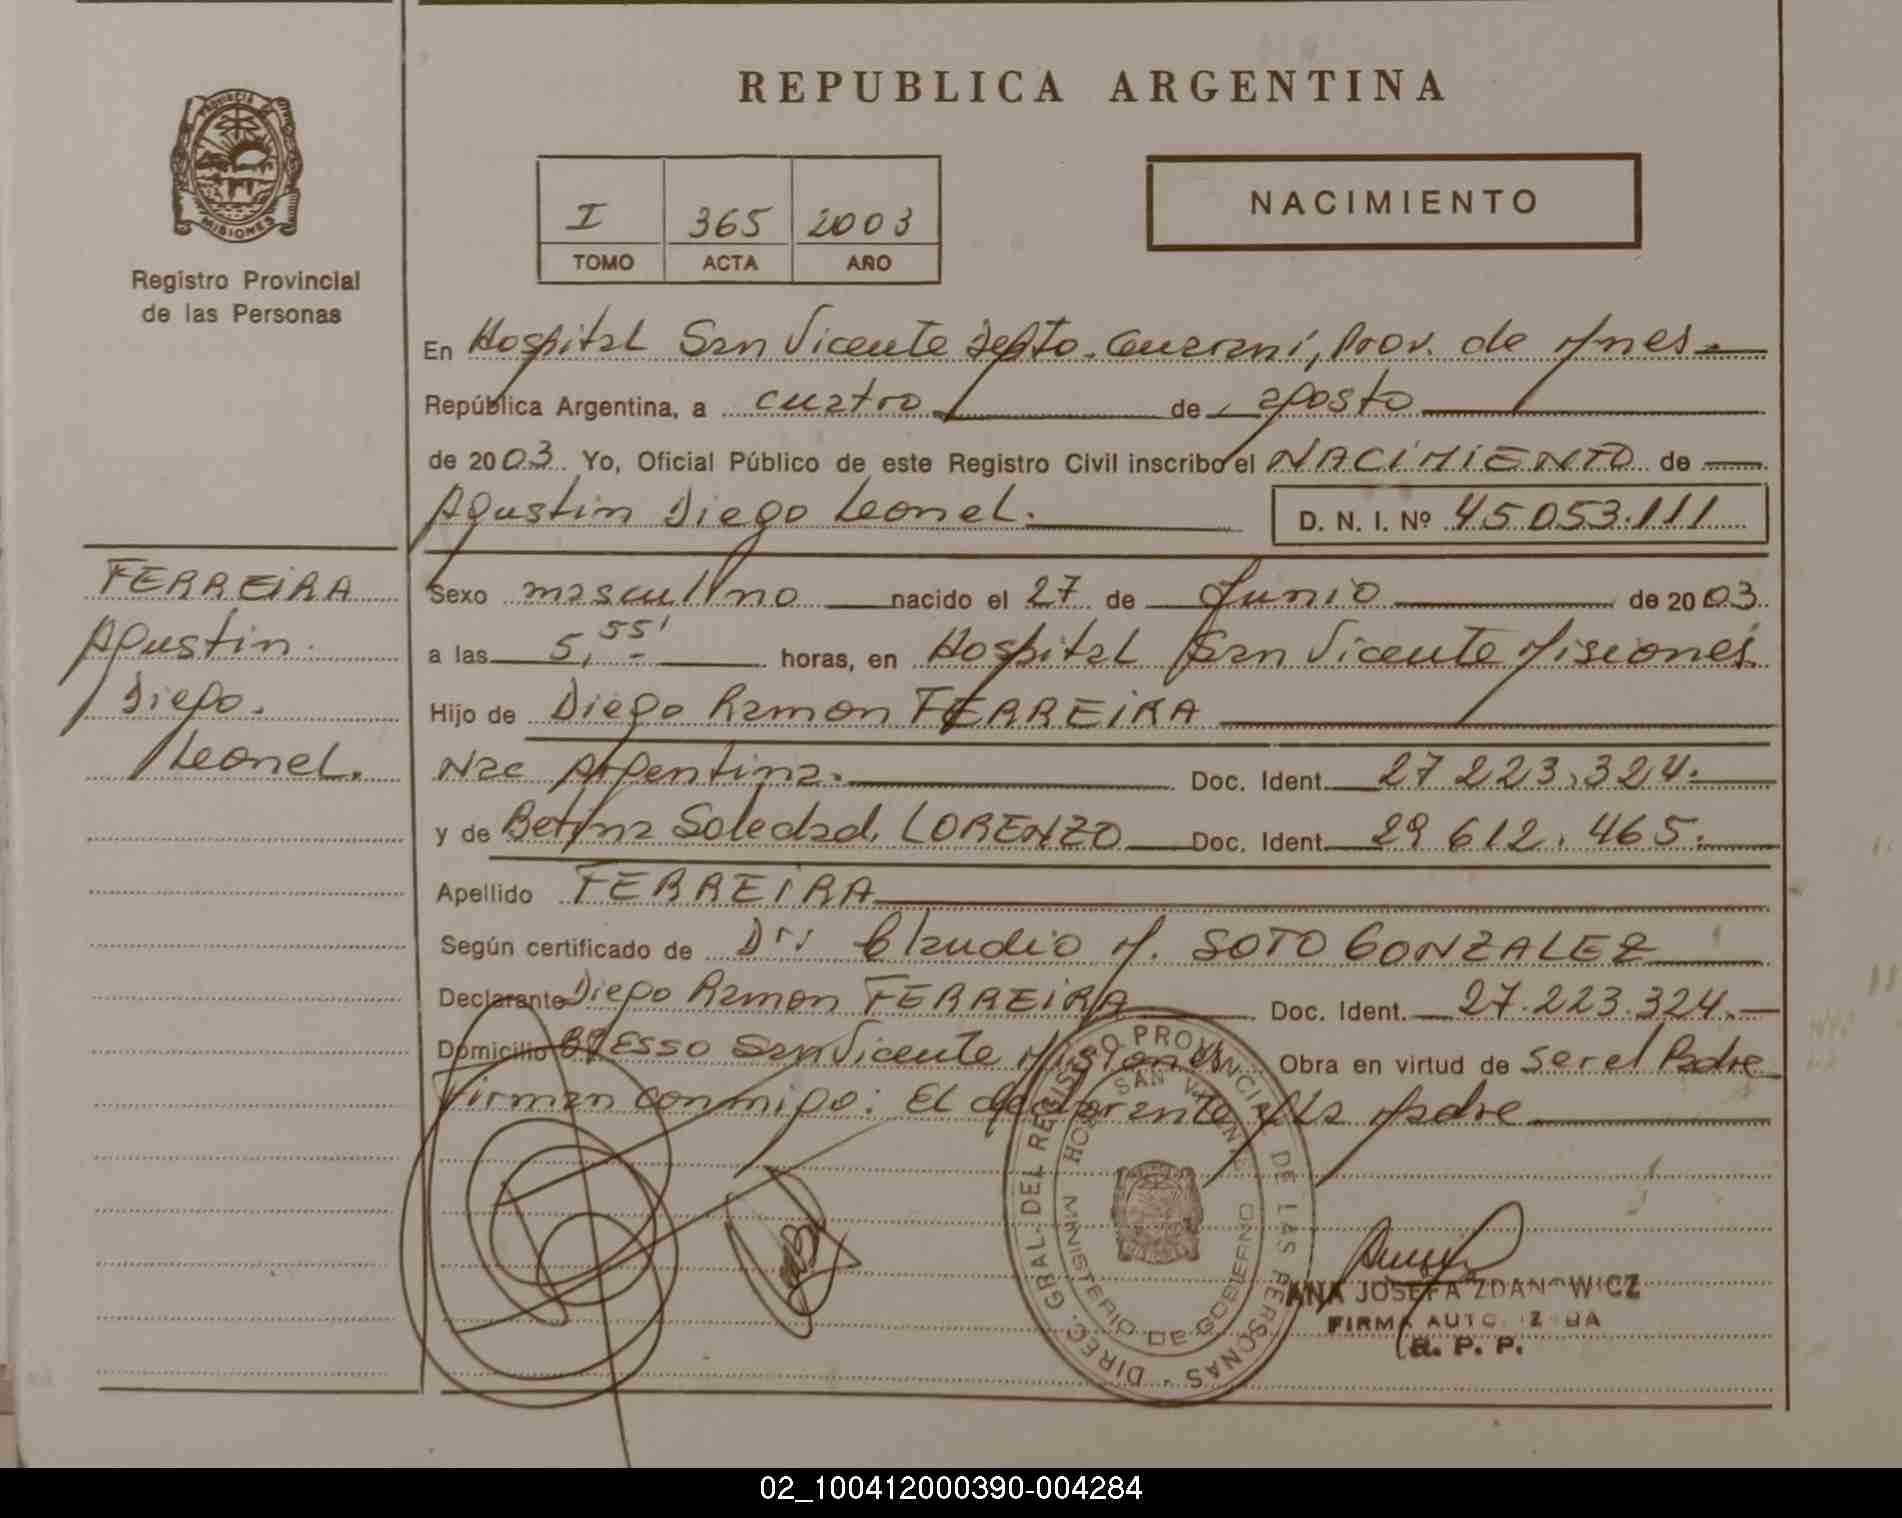 REPUBLICA ARGENTINA
PROVINCIA DE
MISIONES
Registro Provincial
de las Personas
I 365 2003
TOMO ACTA AÑO
NACIMIENTO
En Hospital San Vicente Depto. Guarani, Prov. de Mnes
República Argentina, a cuatro de agosto
de 2003 Yo, Oficial Público de este Registro Civil inscribo el NACIMIENTO de
Agustin Diego Leonel. D. N. I. Nº 45.053.111
FERREIRA
Agustin
Diego.
Leonel.
Sexo masculino nacido el 27 de Junio de 2003
a las 5,55' horas, en Hospital San Vicente Misiones
Hijo de Diego Ramon FERREIRA
Nac Argentina. Doc. Ident. 27.223.324.
y de Betina Soledad LORENZO Doc. Ident. 29.612.465.
Apellido FERREIRA
Según certificado de Dr. Claudio M. SOTO GONZALEZ
Declarante Diego Ramon FERREIRA Doc. Ident. 27.223.324.
Domicilio Bº ESSO San Vicente Misiones Obra en virtud de ser el Padre
Firman conmigo: El declarante y la Madre
DIREC. GRAL. DEL REGISTRO PROVINCIAL DE LAS PERSONAS
HOSP. SAN VICENTE
MINISTERIO DE GOBIERNO
ANA JOSEFA ZDANOWICZ
FIRMA AUTORIZADA
R. P. P.
02_100412000390-004284